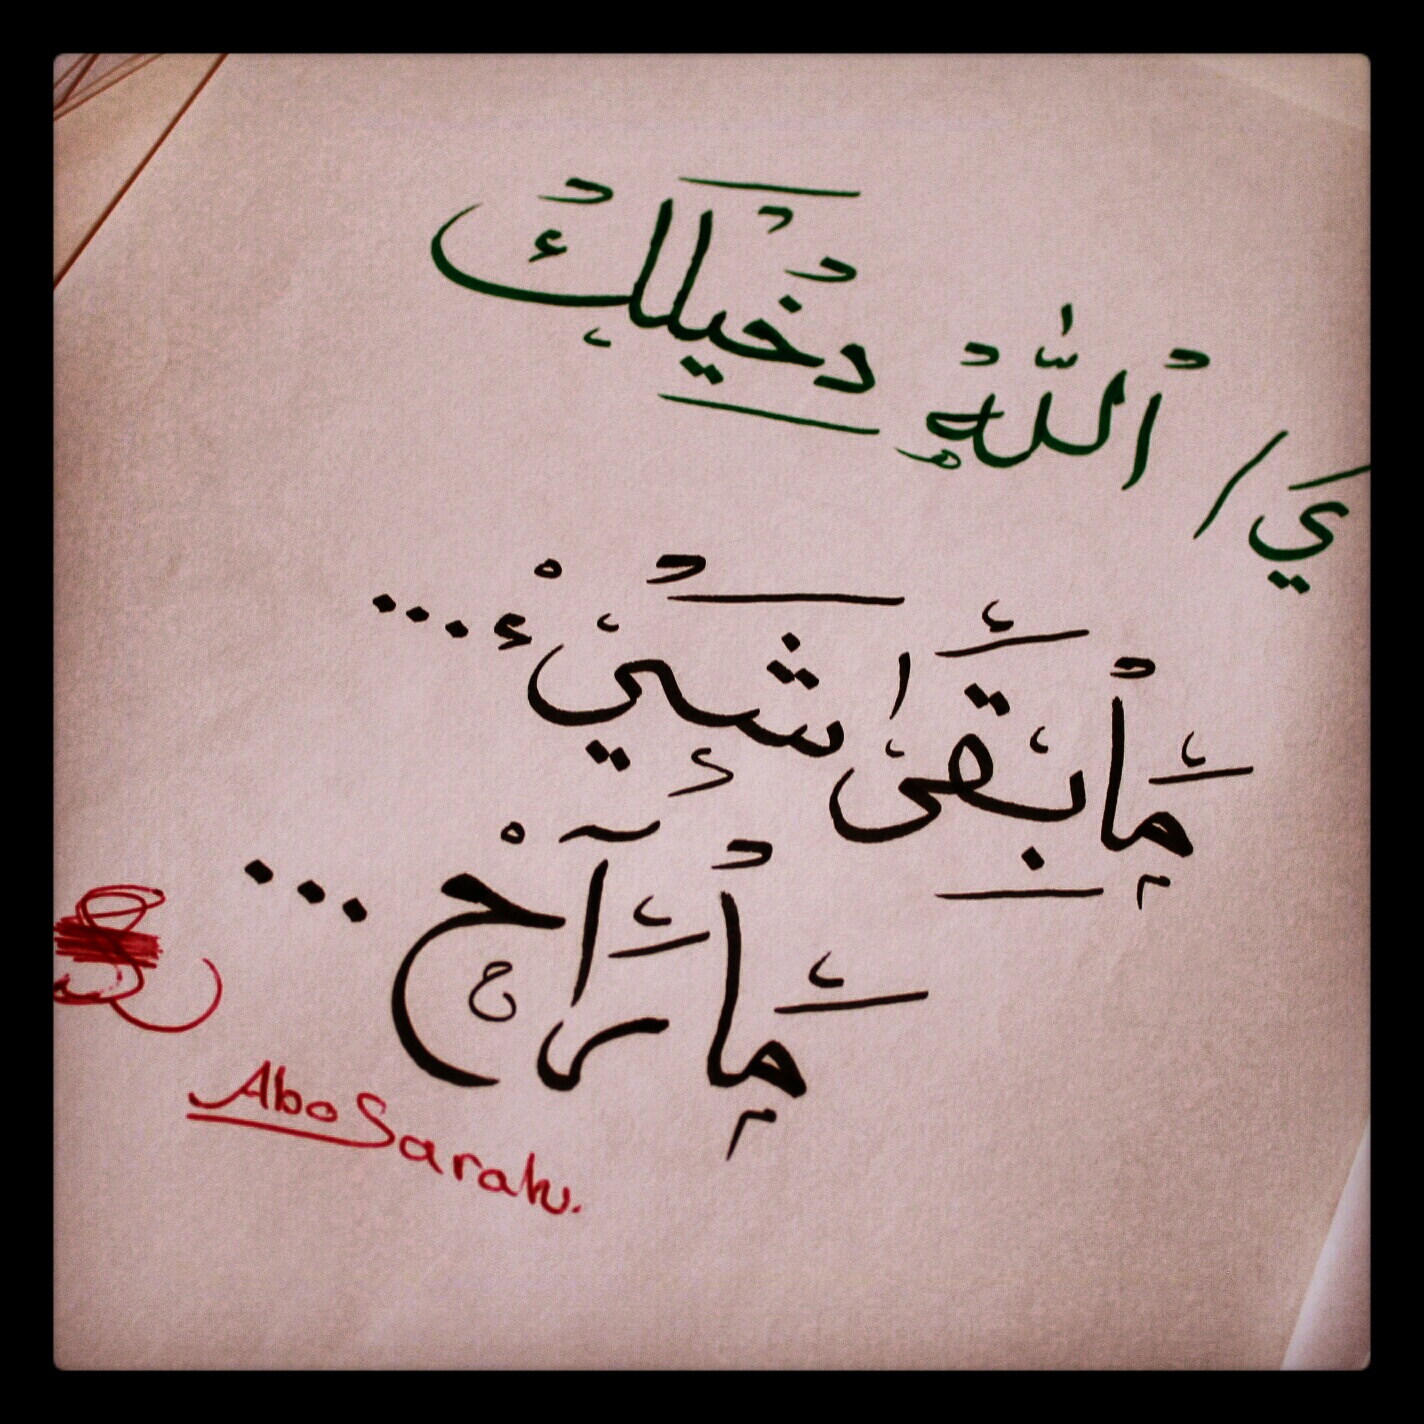 ي/ ٱللّٰه دخيلك
مَا بقىٰ شَيْء...
مَا رَآحْ...
Abo Sarah.